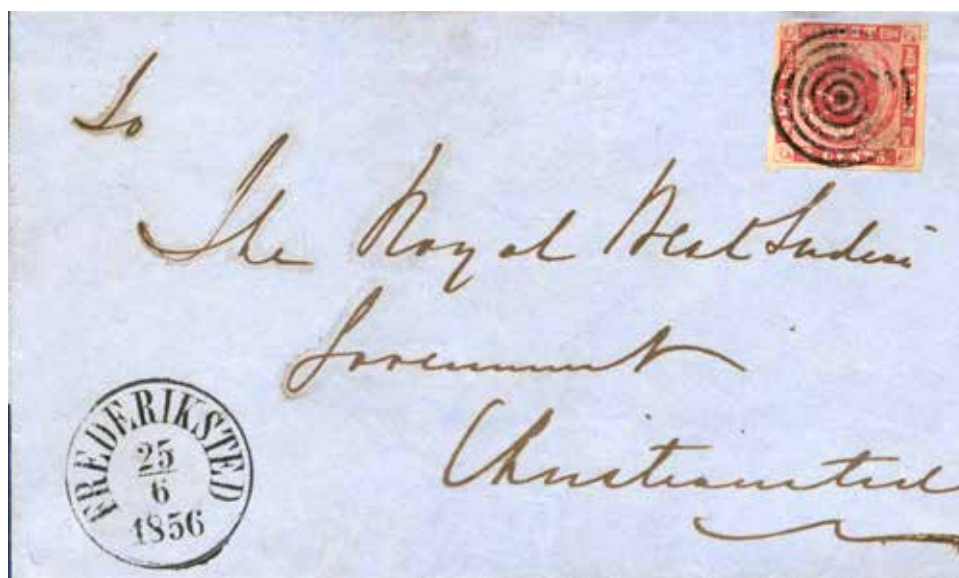 To
The Royal West Indian
Government
Christiansted
FREDERIKSTED
25
6
1856
CENTS